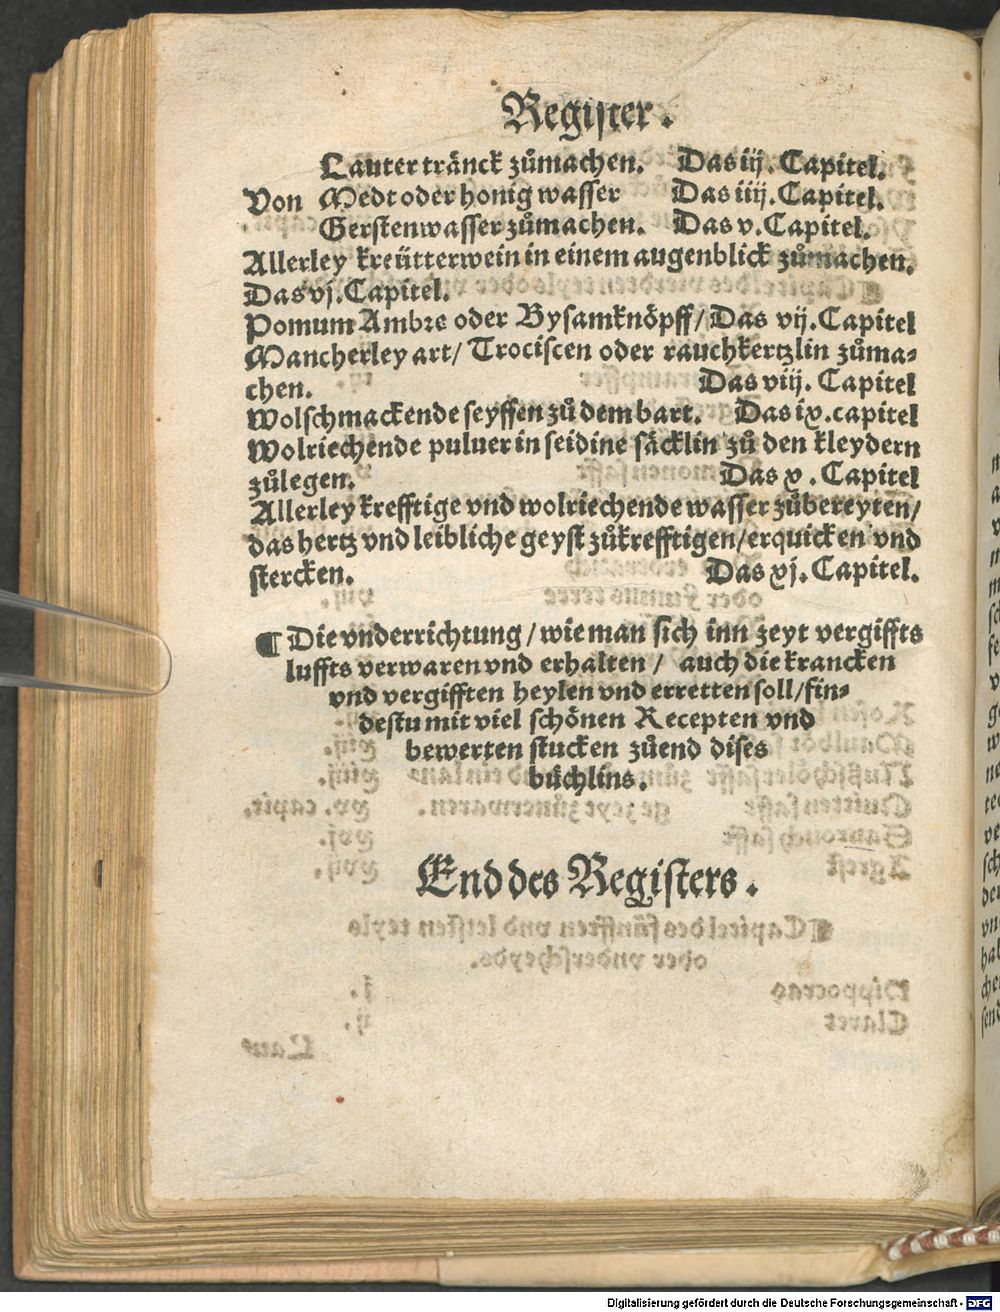 Register.
Lauter tränck zůmachen. Das iij. Capitel.
Von Medt oder honig wasser Das iiij. Capitel.
Gerstenwasser zůmachen. Das v. Capitel.
Allerley kreütterwein in einem augenblick zůmachen.
Das vj. Capitel.
Pomum Ambre oder Bysamknöpff/ Das vij. Capitel
Mancherley art/ Trociscen oder rauchkertzlin zůma-
chen. Das viij. Capitel
Wolschmackende seyffen zů dem bart. Das ix. capitel
Wolriechende puluer in seidine säcklin zů den kleydern
zůlegen. Das x. Capitel
Allerley krefftige vnd wolriechende wasser zůbereyten/
das hertz vnd leibliche geyst zůkrefftigen/ erquicken vnd
stercken. Das xj. Capitel.
¶ Die vnderrichtung/ wie man sich inn zeyt vergiffts
luffts verwaren vnd erhalten/ auch die krancken
vnd vergifften heylen vnd erretten soll/ fin-
destu mit viel schönen Recepten vnd
bewerten stucken zůend dises
büchlins.
End des Registers.
Digitalisierung gefördert durch die Deutsche Forschungsgemeinschaft - DFG